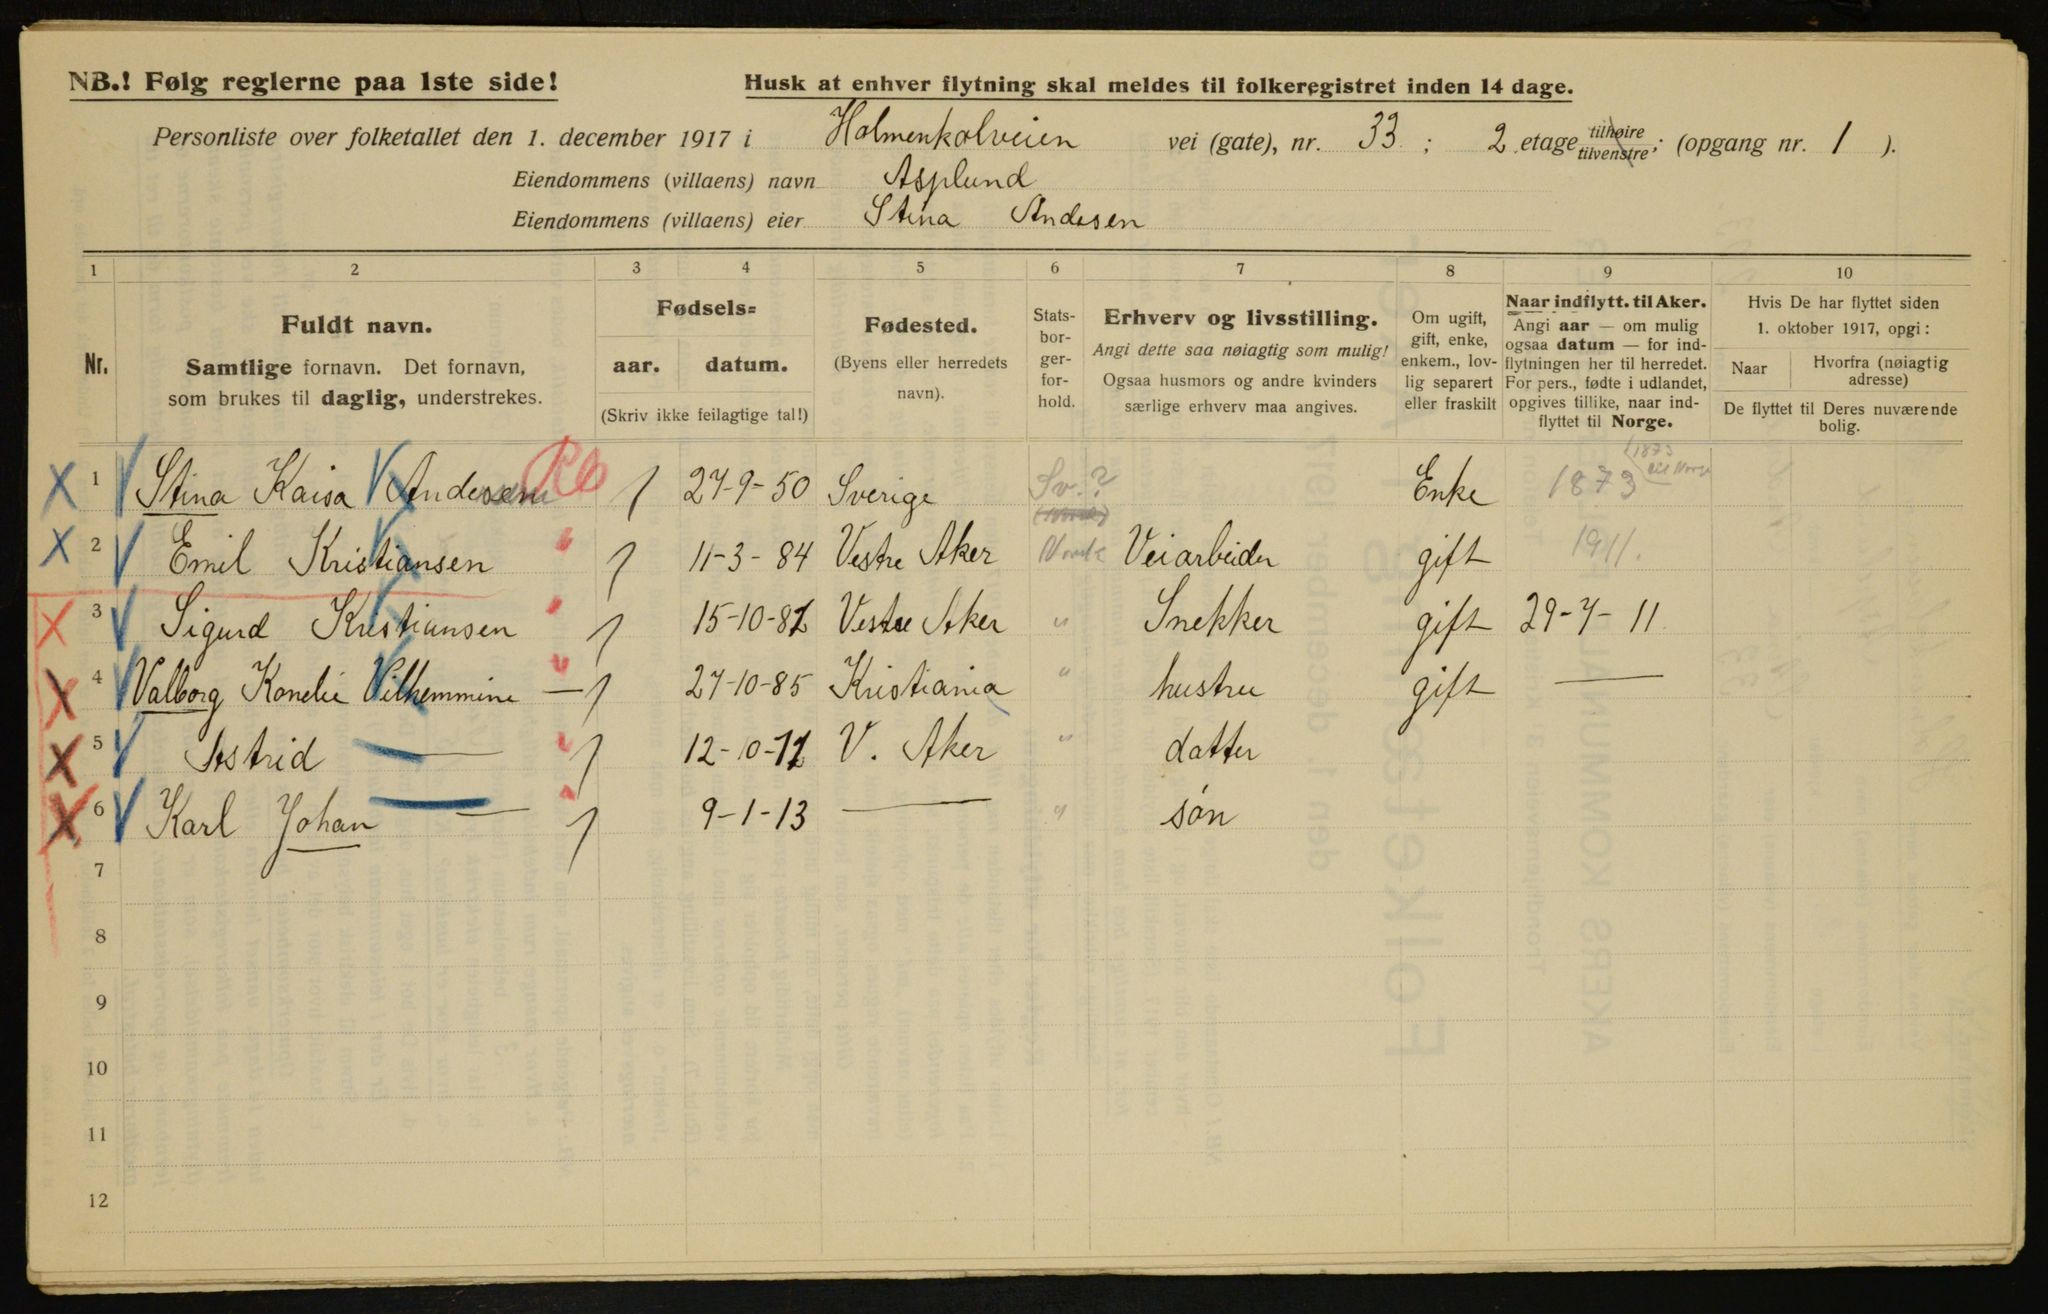 NB.! Følg reglerne paa 1ste side!
Husk at enhver flytning skal meldes til folkeregistret inden 14 dage.
Personliste over folketallet den 1. december 1917 i Holmenkolveien vei (gate), nr. 33 ; 2 etage tilhøire tilvenstre ; (opgang nr. 1 ).
Eiendommens (villaens) navn Asplund
Eiendommens (villaens) eier Stina Andesen
1 2 3 4 5 6 7 8 9 10
Nr.
Fuldt navn.
Samtlige fornavn. Det fornavn,
som brukes til daglig, understrekes.
Fødsels=
aar. datum.
(Skriv ikke feilagtige tal!)
Fødested.
(Byens eller herredets
navn).
Stats-
bor-
ger-
for-
hold.
Erhverv og livsstilling.
Angi dette saa nøiagtig som mulig!
Ogsaa husmors og andre kvinders
særlige erhverv maa angives.
Om ugift,
gift, enke,
enkem., lov-
lig separert
eller fraskilt
Naar indflytt. til Aker.
Angi aar — om mulig
ogsaa datum — for ind-
flytningen her til herredet.
For pers., fødte i udlandet,
opgives tillike, naar ind-
flyttet til Norge.
Hvis De har flyttet siden
1. oktober 1917, opgi:
Naar
Hvorfra (nøiagtig
adresse)
De flyttet til Deres nuværende
bolig.
1 Stina Kaisa Andesen 27-9-50 Sverige Sv.? Enke 1873 (1873 til Norge
2 Emil Kristiansen " 11-3-84 Vestre Aker Norsk Veiarbeider gift 1911.
3 Sigurd Kristiansen " 15-10-82 Vestre Aker " Snekker gift 29-7-11.
4 Valborg Konelie Vilhemmine — " 27-10-85 Kristiania " hustru gift —
5 Astrid — " 12-10-11 V. Aker " datter
6 Karl Johan — " 9-1-13 — " søn
7
8
9
10
11
12